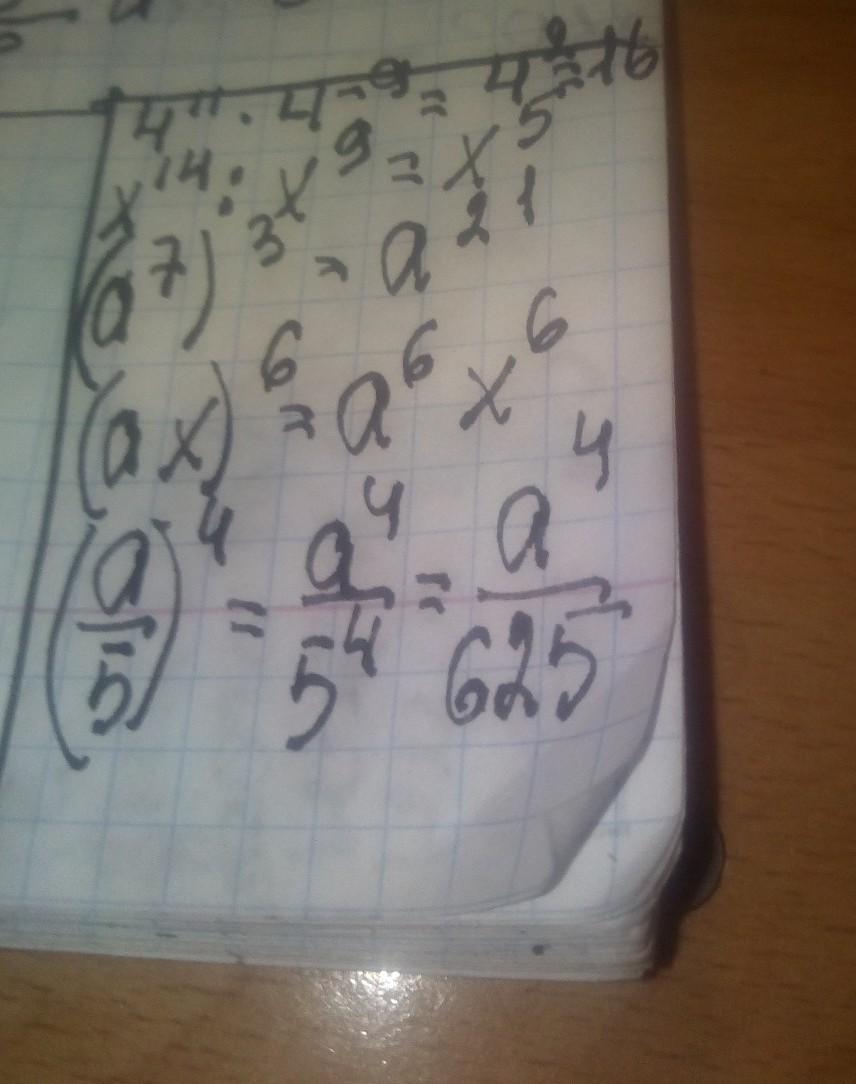 4¹¹ · 4⁻⁹ = 4² = 16
x¹⁴ : x⁹ = x⁵
(a⁷)³ = a²¹
(ax)⁶ = a⁶ x⁶
(a/5)⁴ = a⁴/5⁴ = a⁴/625